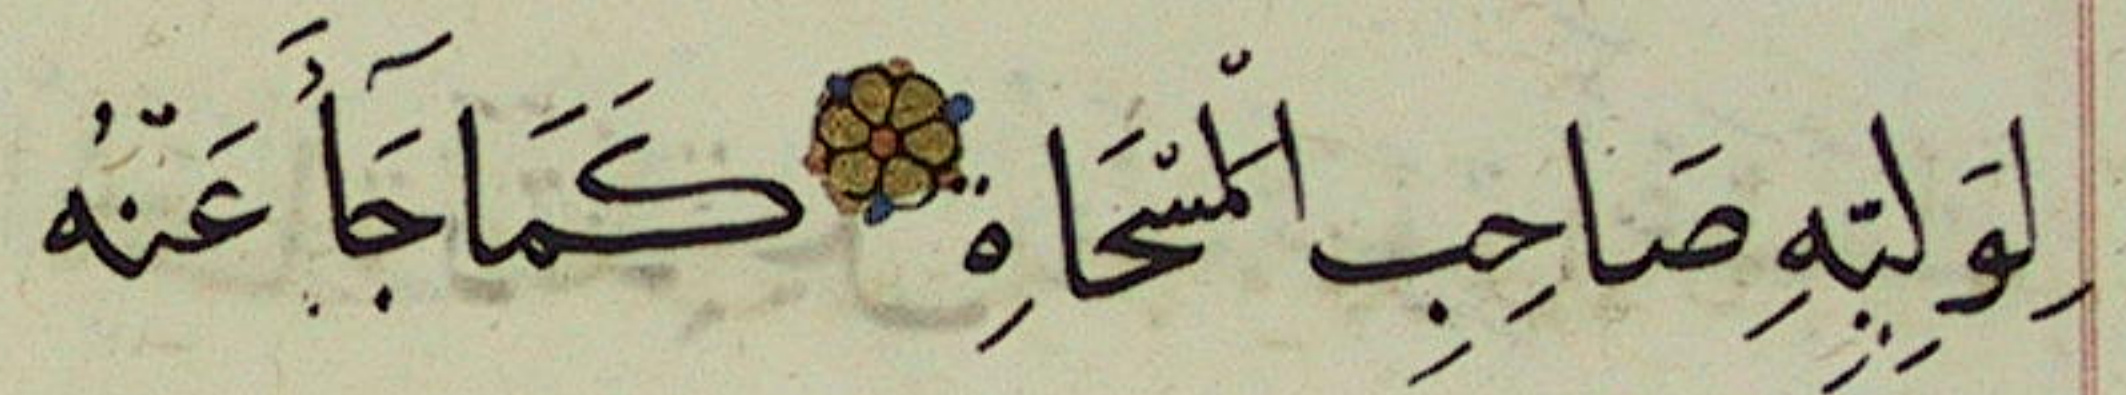 لِوَلِيِّهِ صَاحِبِ الْمَسْحَاةِ كَمَا جَآءَ عَنْهُ